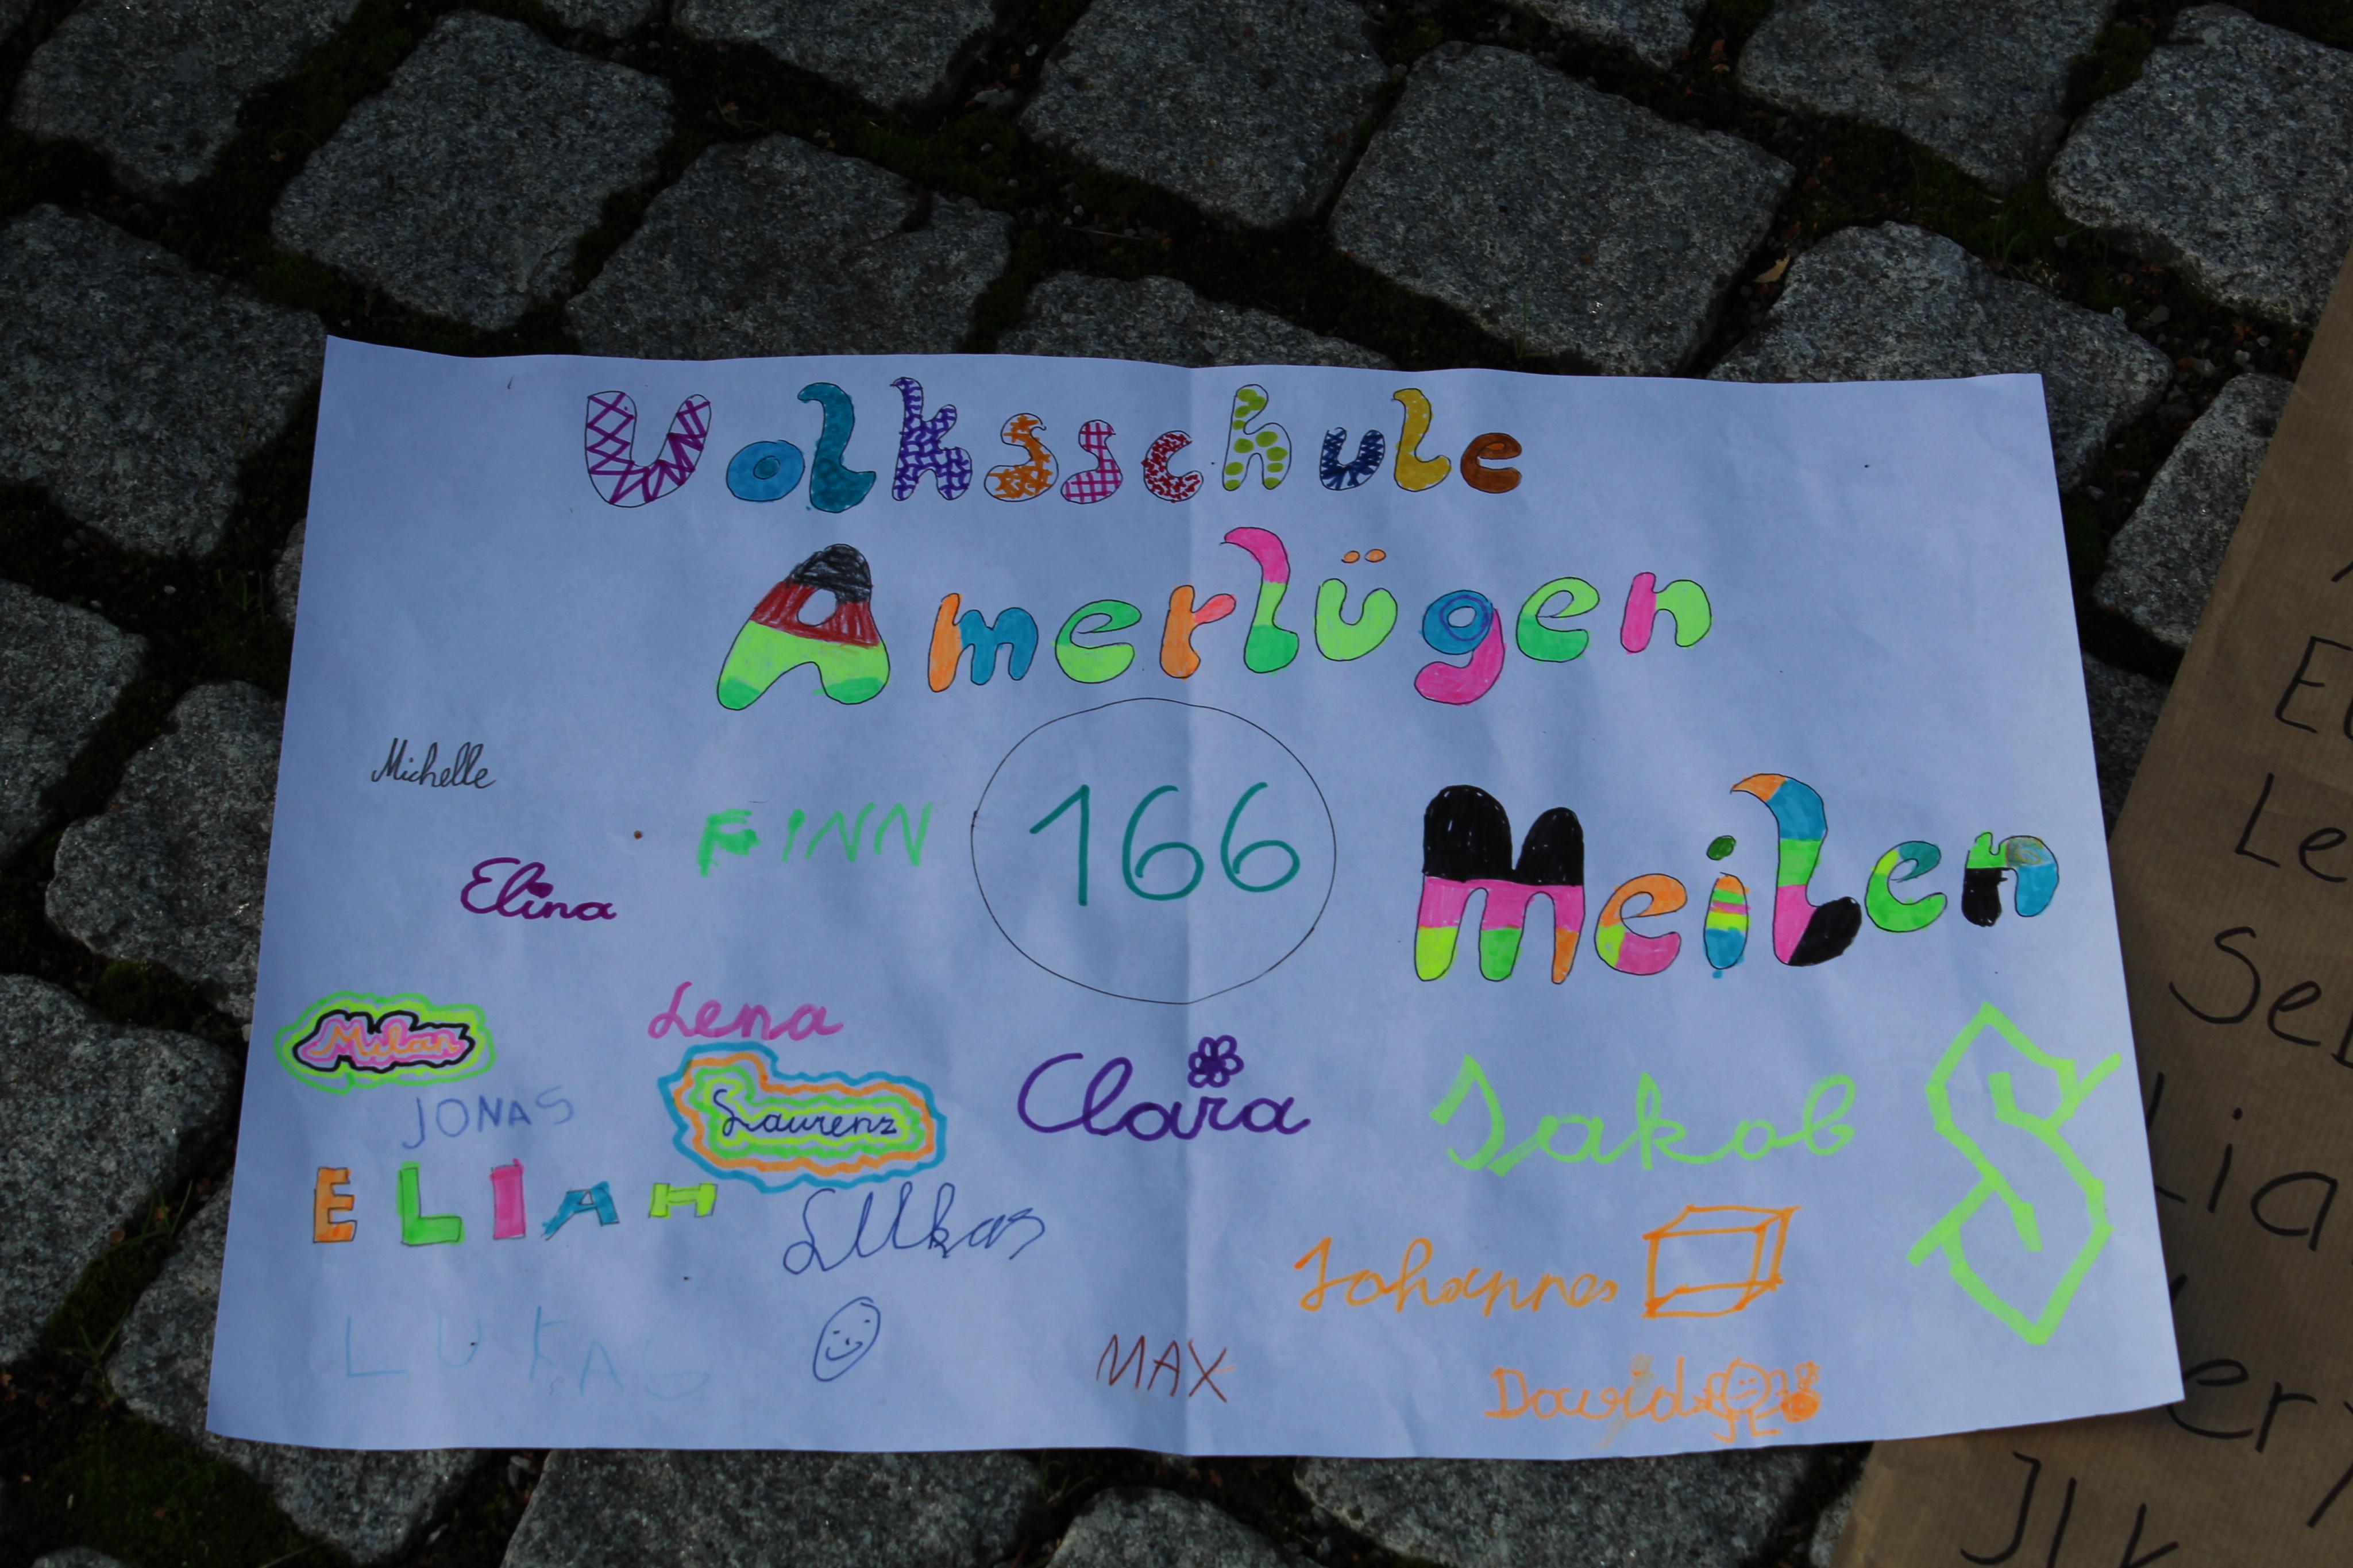 Volksschule
Amerlügen
166 Meilen
Michelle
FINN
Elina
Milan
Lena
JONAS
Laurenz
Clara
Jakob
ELIAH
Lukas
Johannes
LUKAS
MAX
David
Le
Lia